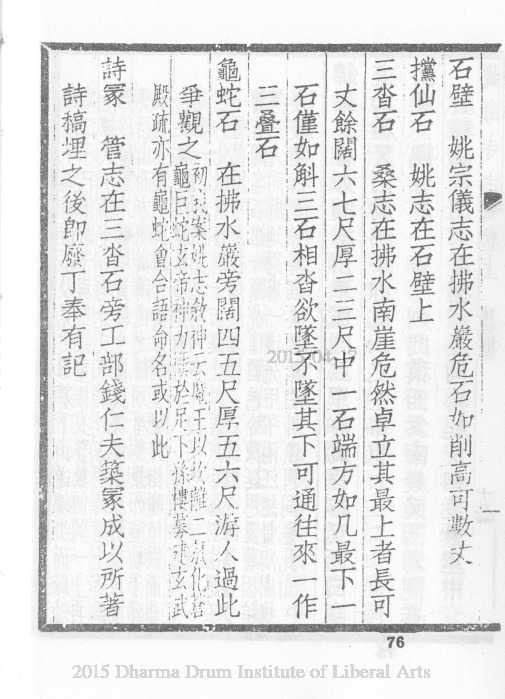 石壁　姚宗儀志在拂水巖危石如削高可數丈
攩仙石　姚志在石壁上
三沓石　桑志在拂水南崖危然卓立其最上者長可
丈餘闊六七尺厚二三尺中一石端方如几最下一
石僅如斛三石相沓欲墜不墜其下可通往來一作
三疊石
龜蛇石　在拂水巖旁闊四五尺厚五六尺游人過此
爭觀之
案姚志敘神云魔王以坎離二炁化
龜巨蛇玄帝神力於足下樓募建玄武
殿疏亦有龜蛇會合語命名或以此
詩冢　管志在三沓石旁工部錢仁夫築冢成以所著
詩稿埋之後卽廢丁奉有記
76
2015 Dharma Drum Institute of Liberal Arts